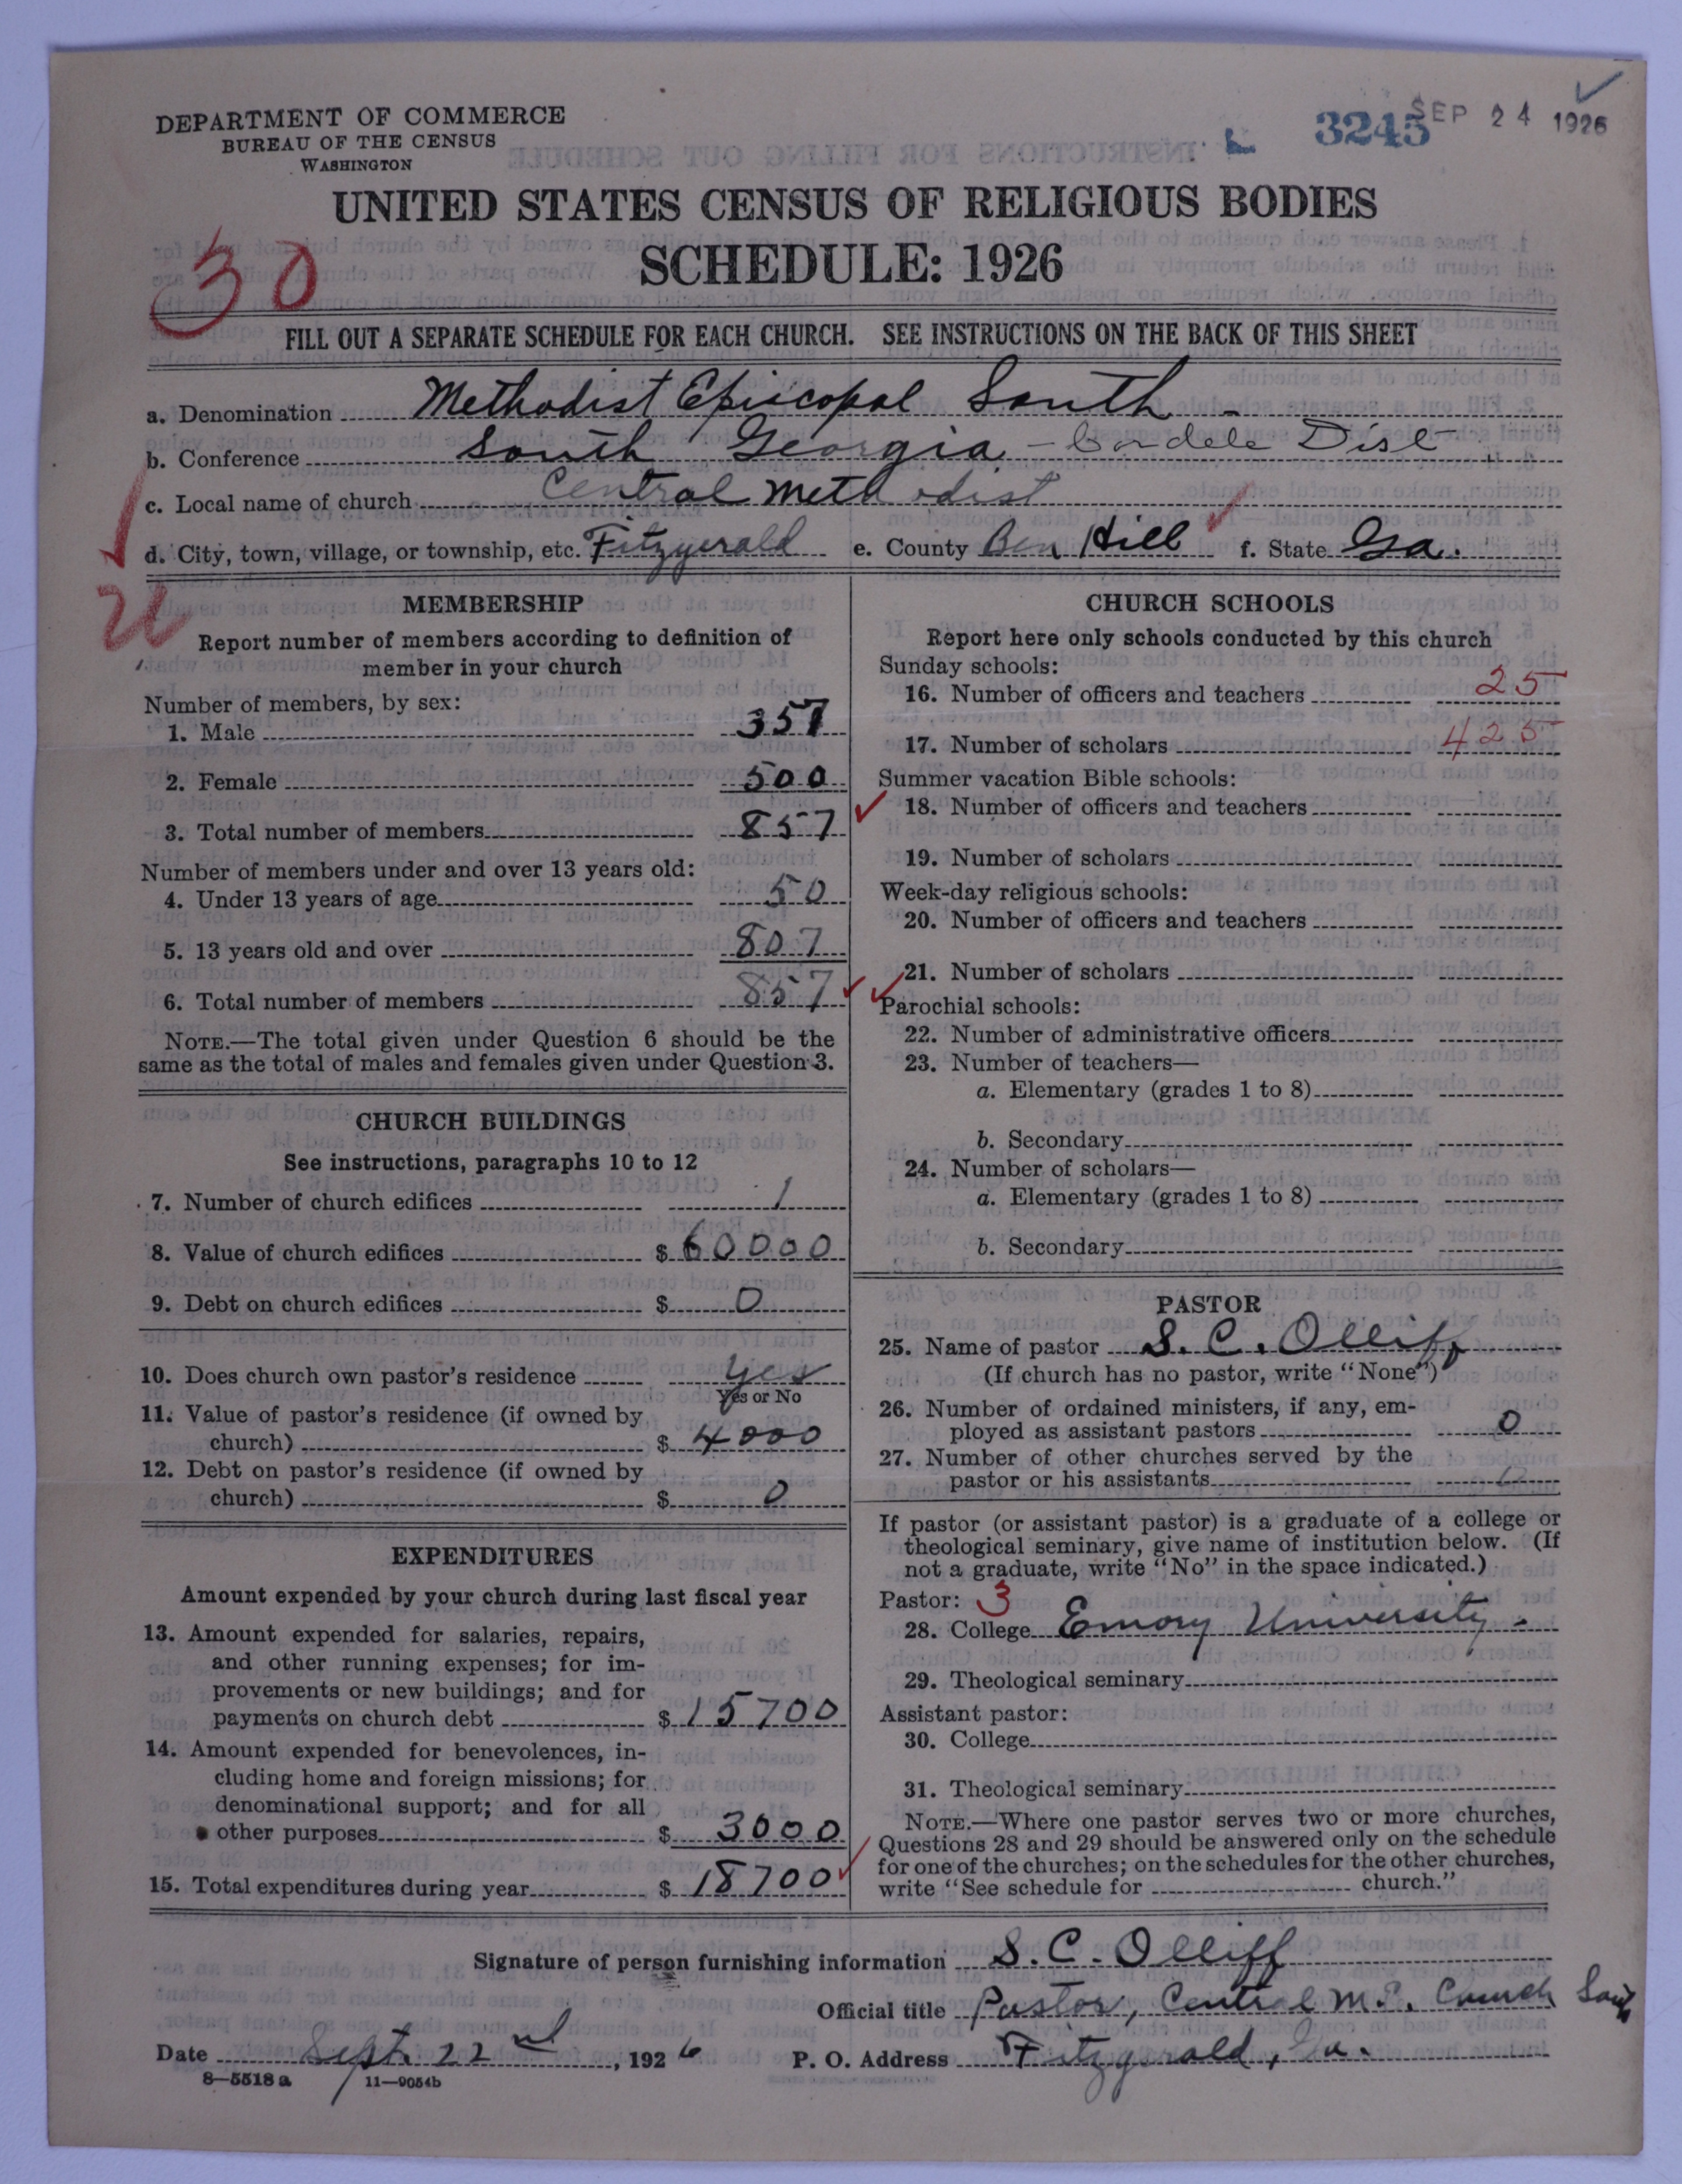 DEPARTMENT OF COMMERCE
BUREAU OF THE CENSUS
WASHINGTON
3245
SEP 24 1926
UNITED STATES CENSUS OF RELIGIOUS BODIES
SCHEDULE: 1926
30
FILL OUT A SEPARATE SCHEDULE FOR EACH CHURCH. SEE INSTRUCTIONS ON THE BACK OF THIS SHEET
a. Denomination Methodist Episcopal South -
b. Conference South Georgia - Cordele Dist
c. Local name of church Central Methodist
d. City, town, village, or township, etc. Fitzgerald e. County Ben Hill f. State Ga.
MEMBERSHIP
Report number of members according to definition of
member in your church
Number of members, by sex:
1. Male 357
2. Female 500
3. Total number of members 857
Number of members under and over 13 years old:
4. Under 13 years of age 50
5. 13 years old and over 807
6. Total number of members 857
NOTE.—The total given under Question 6 should be the
same as the total of males and females given under Question 3.
CHURCH BUILDINGS
See instructions, paragraphs 10 to 12
7. Number of church edifices 1
8. Value of church edifices $ 60000
9. Debt on church edifices $ 0
10. Does church own pastor's residence yes
Yes or No
11. Value of pastor's residence (if owned by
church) $ 4000
12. Debt on pastor's residence (if owned by
church) $ 0
EXPENDITURES
Amount expended by your church during last fiscal year
13. Amount expended for salaries, repairs,
and other running expenses; for im-
provements or new buildings; and for
payments on church debt $ 15700
14. Amount expended for benevolences, in-
cluding home and foreign missions; for
denominational support; and for all
other purposes $ 3000
15. Total expenditures during year $ 18700
CHURCH SCHOOLS
Report here only schools conducted by this church
Sunday schools:
16. Number of officers and teachers 25
17. Number of scholars 425
Summer vacation Bible schools:
18. Number of officers and teachers
19. Number of scholars
Week-day religious schools:
20. Number of officers and teachers
21. Number of scholars
Parochial schools:
22. Number of administrative officers
23. Number of teachers—
a. Elementary (grades 1 to 8)
b. Secondary
24. Number of scholars—
a. Elementary (grades 1 to 8)
b. Secondary
PASTOR
25. Name of pastor S. C. Olliff
(If church has no pastor, write "None")
26. Number of ordained ministers, if any, em-
ployed as assistant pastors 0
27. Number of other churches served by the
pastor or his assistants
If pastor (or assistant pastor) is a graduate of a college or
theological seminary, give name of institution below. (If
not a graduate, write "No" in the space indicated.)
Pastor: 3
28. College Emory University.
29. Theological seminary
Assistant pastor:
30. College
31. Theological seminary
NOTE.—Where one pastor serves two or more churches,
Questions 28 and 29 should be answered only on the schedule
for one of the churches; on the schedules for the other churches,
write "See schedule for church."
Signature of person furnishing information S. C. Olliff
Official title Pastor, Central M.E. Church South
Date Sept. 22nd, 1926 P. O. Address Fitzgerald, Ga.
8—5518 a 11—9054b